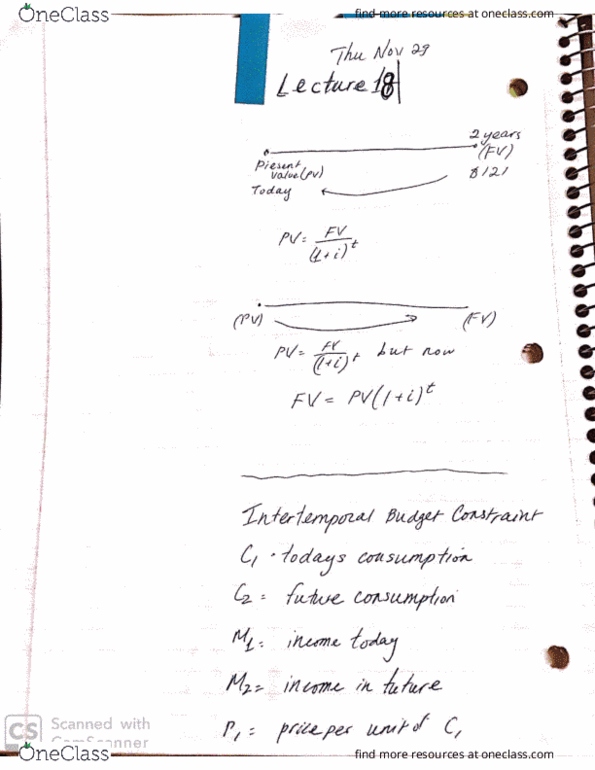 OneClass
find more resources at oneclass.com
Thu Nov 29
Lecture 18
2 years
(FV)
Present
value(PV)
$121
Today
PV = FV/(1+i)^t
(PV) (FV)
PV = FV/(1+i)^t but now
FV = PV(1+i)^t
Intertemporal Budget Constraint
C1 · todays consumption
C2 = future consumption
M1 = income today
M2 = income in future
P1 = price per unit of C1
CS Scanned with
CamScanner
OneClass
find more resources at oneclass.com